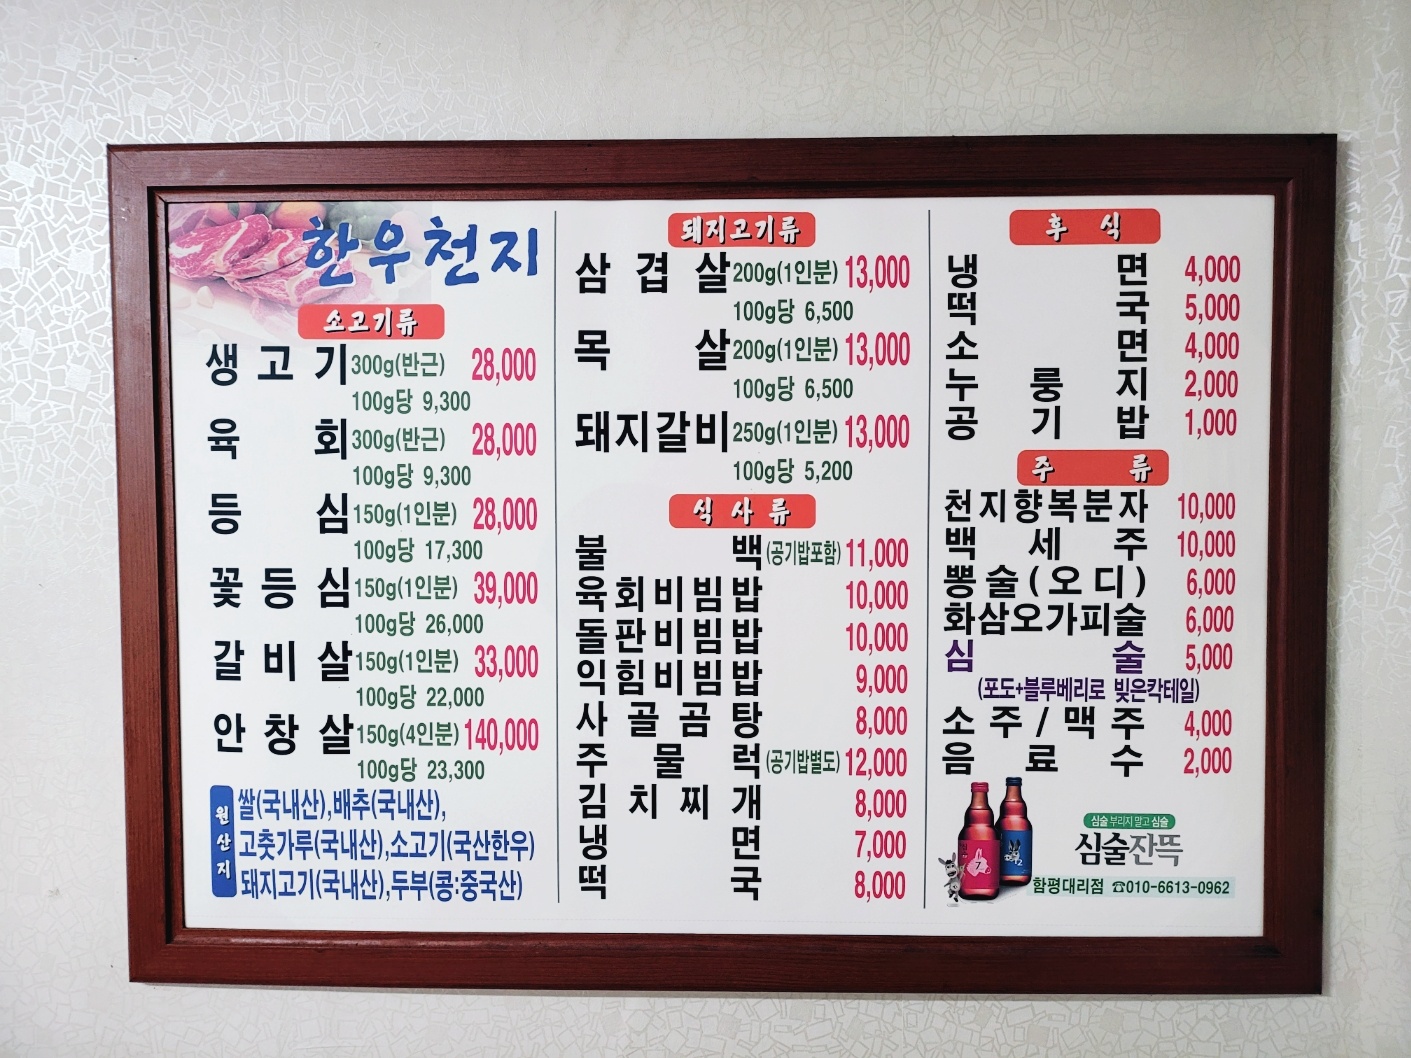 한우천지
소고기류
생고기 300g(반근) 28,000
100g당 9,300
육회 300g(반근) 28,000
100g당 9,300
등심 150g(1인분) 28,000
100g당 17,300
꽃등심 150g(1인분) 39,000
100g당 26,000
갈비살 150g(1인분) 33,000
100g당 22,000
안창살 150g(4인분) 140,000
100g당 23,300
원산지
쌀(국내산),배추(국내산),
고춧가루(국내산),소고기(국산한우)
돼지고기(국내산),두부(콩:중국산)
돼지고기류
삼겹살 200g(1인분) 13,000
100g당 6,500
목살 200g(1인분) 13,000
100g당 6,500
돼지갈비 250g(1인분) 13,000
100g당 5,200
식사류
불백(공기밥포함) 11,000
육회비빔밥 10,000
돌판비빔밥 10,000
익힘비빔밥 9,000
사골곰탕 8,000
주물럭(공기밥별도) 12,000
김치찌개 8,000
냉면 7,000
떡국 8,000
후식
냉면 4,000
떡국 5,000
소면 4,000
누룽지 2,000
공기밥 1,000
주류
천지향복분자 10,000
백세주 10,000
뽕술(오디) 6,000
화삼오가피술 6,000
심술 5,000
(포도+블루베리로 빚은칵테일)
소주/맥주 4,000
음료수 2,000
심술 부리지 말고 심술
심술잔뜩
7
함평대리점 ☎010-6613-0962